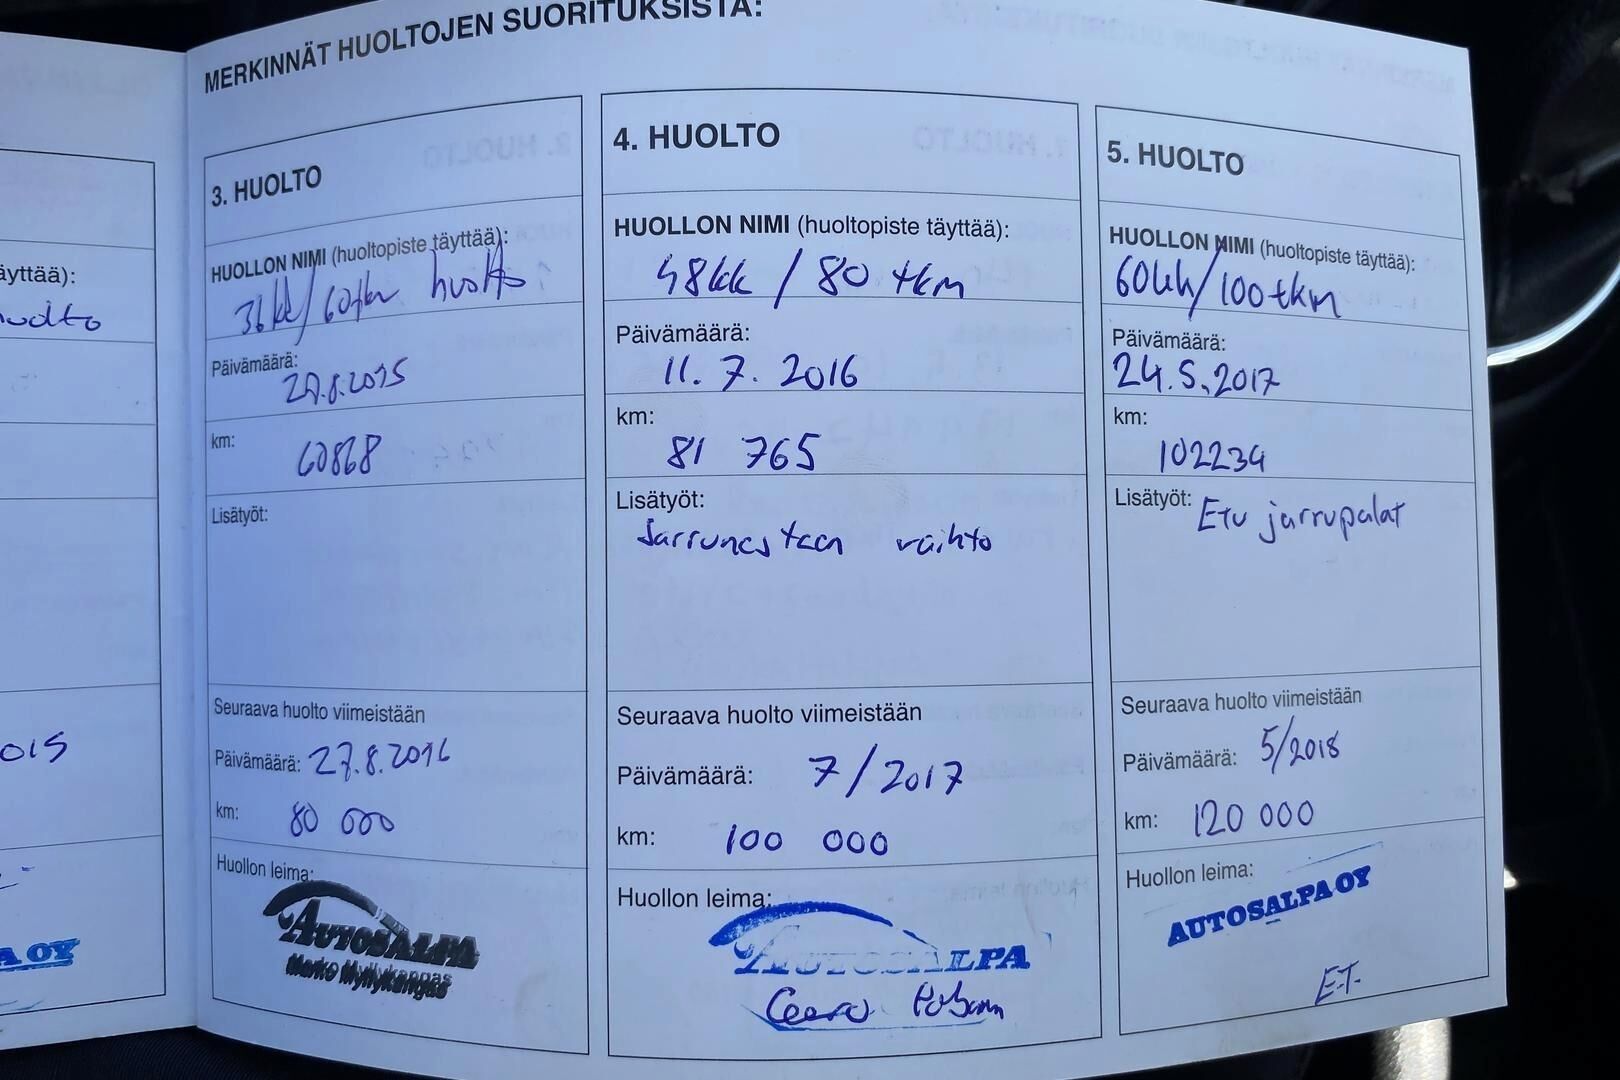 MERKINNÄT HUOLTOJEN SUORITUKSISTA:
äyttää):
015
A OY
3. HUOLTO
HUOLLON NIMI (huoltopiste täyttää):
36kk/60tkm huolto
Päivämäärä:
27.8.2015
km:
60868
Lisätyöt:
Seuraava huolto viimeistään
Päivämäärä: 27.8.2016
km: 80 000
Huollon leima:
AUTOSALPA
Marko Myllykangas
4. HUOLTO
HUOLLON NIMI (huoltopiste täyttää):
48kk / 80 tkm
Päivämäärä:
11. 7. 2016
km:
81 765
Lisätyöt:
Jarrunesteen vaihto
Seuraava huolto viimeistään
Päivämäärä: 7/2017
km: 100 000
Huollon leima:
AUTOSALPA
5. HUOLTO
HUOLLON NIMI (huoltopiste täyttää):
60kk/100tkm
Päivämäärä:
24.5.2017
km:
102234
Lisätyöt: Etu jarrupalat
Seuraava huolto viimeistään
Päivämäärä: 5/2018
km: 120 000
Huollon leima:
AUTOSALPA OY
E.T.